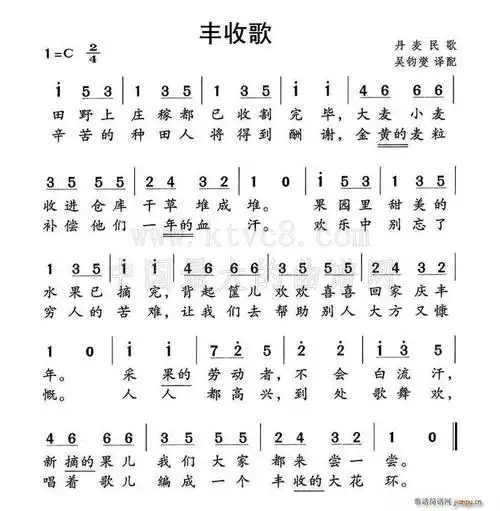 丰收歌
1=C 2/4
丹麦民歌
吴钧燮 译配
i 5 3 | i 5 3 | 5 5 5 5 | 5 5 | i i | 4 6 6 6 |
田野上庄稼都已收割完毕，大麦小麦
辛苦的种田人将得到酬谢，金黄的麦粒
3 5 5 5 | 2 4 3 2 | 1 0 | i 5 3 | i 5 3 |
收进仓库干草堆成堆。果园里甜美的
补偿他们一年的血汗。欢乐中别忘了
www.ktvc8.com
中国最大的曲谱网
水果已摘完，背起筐儿欢欢喜喜回家庆丰
穷人的苦难，让我们去帮助别人大方又慷
1 0 | i i | 7 2 5 | 2 2 | i 3 5 |
年。采果的劳动者，不会白流汗，
慨。人人都高兴，到处歌舞欢，
4 6 6 6 | 3 5 5 5 | 2 4 3 2 | 1 0 ‖
新摘的果儿我们大家都来尝一尝。
唱着歌儿编成一个丰收的大花环。
歌谱简谱网
jianpu.cn